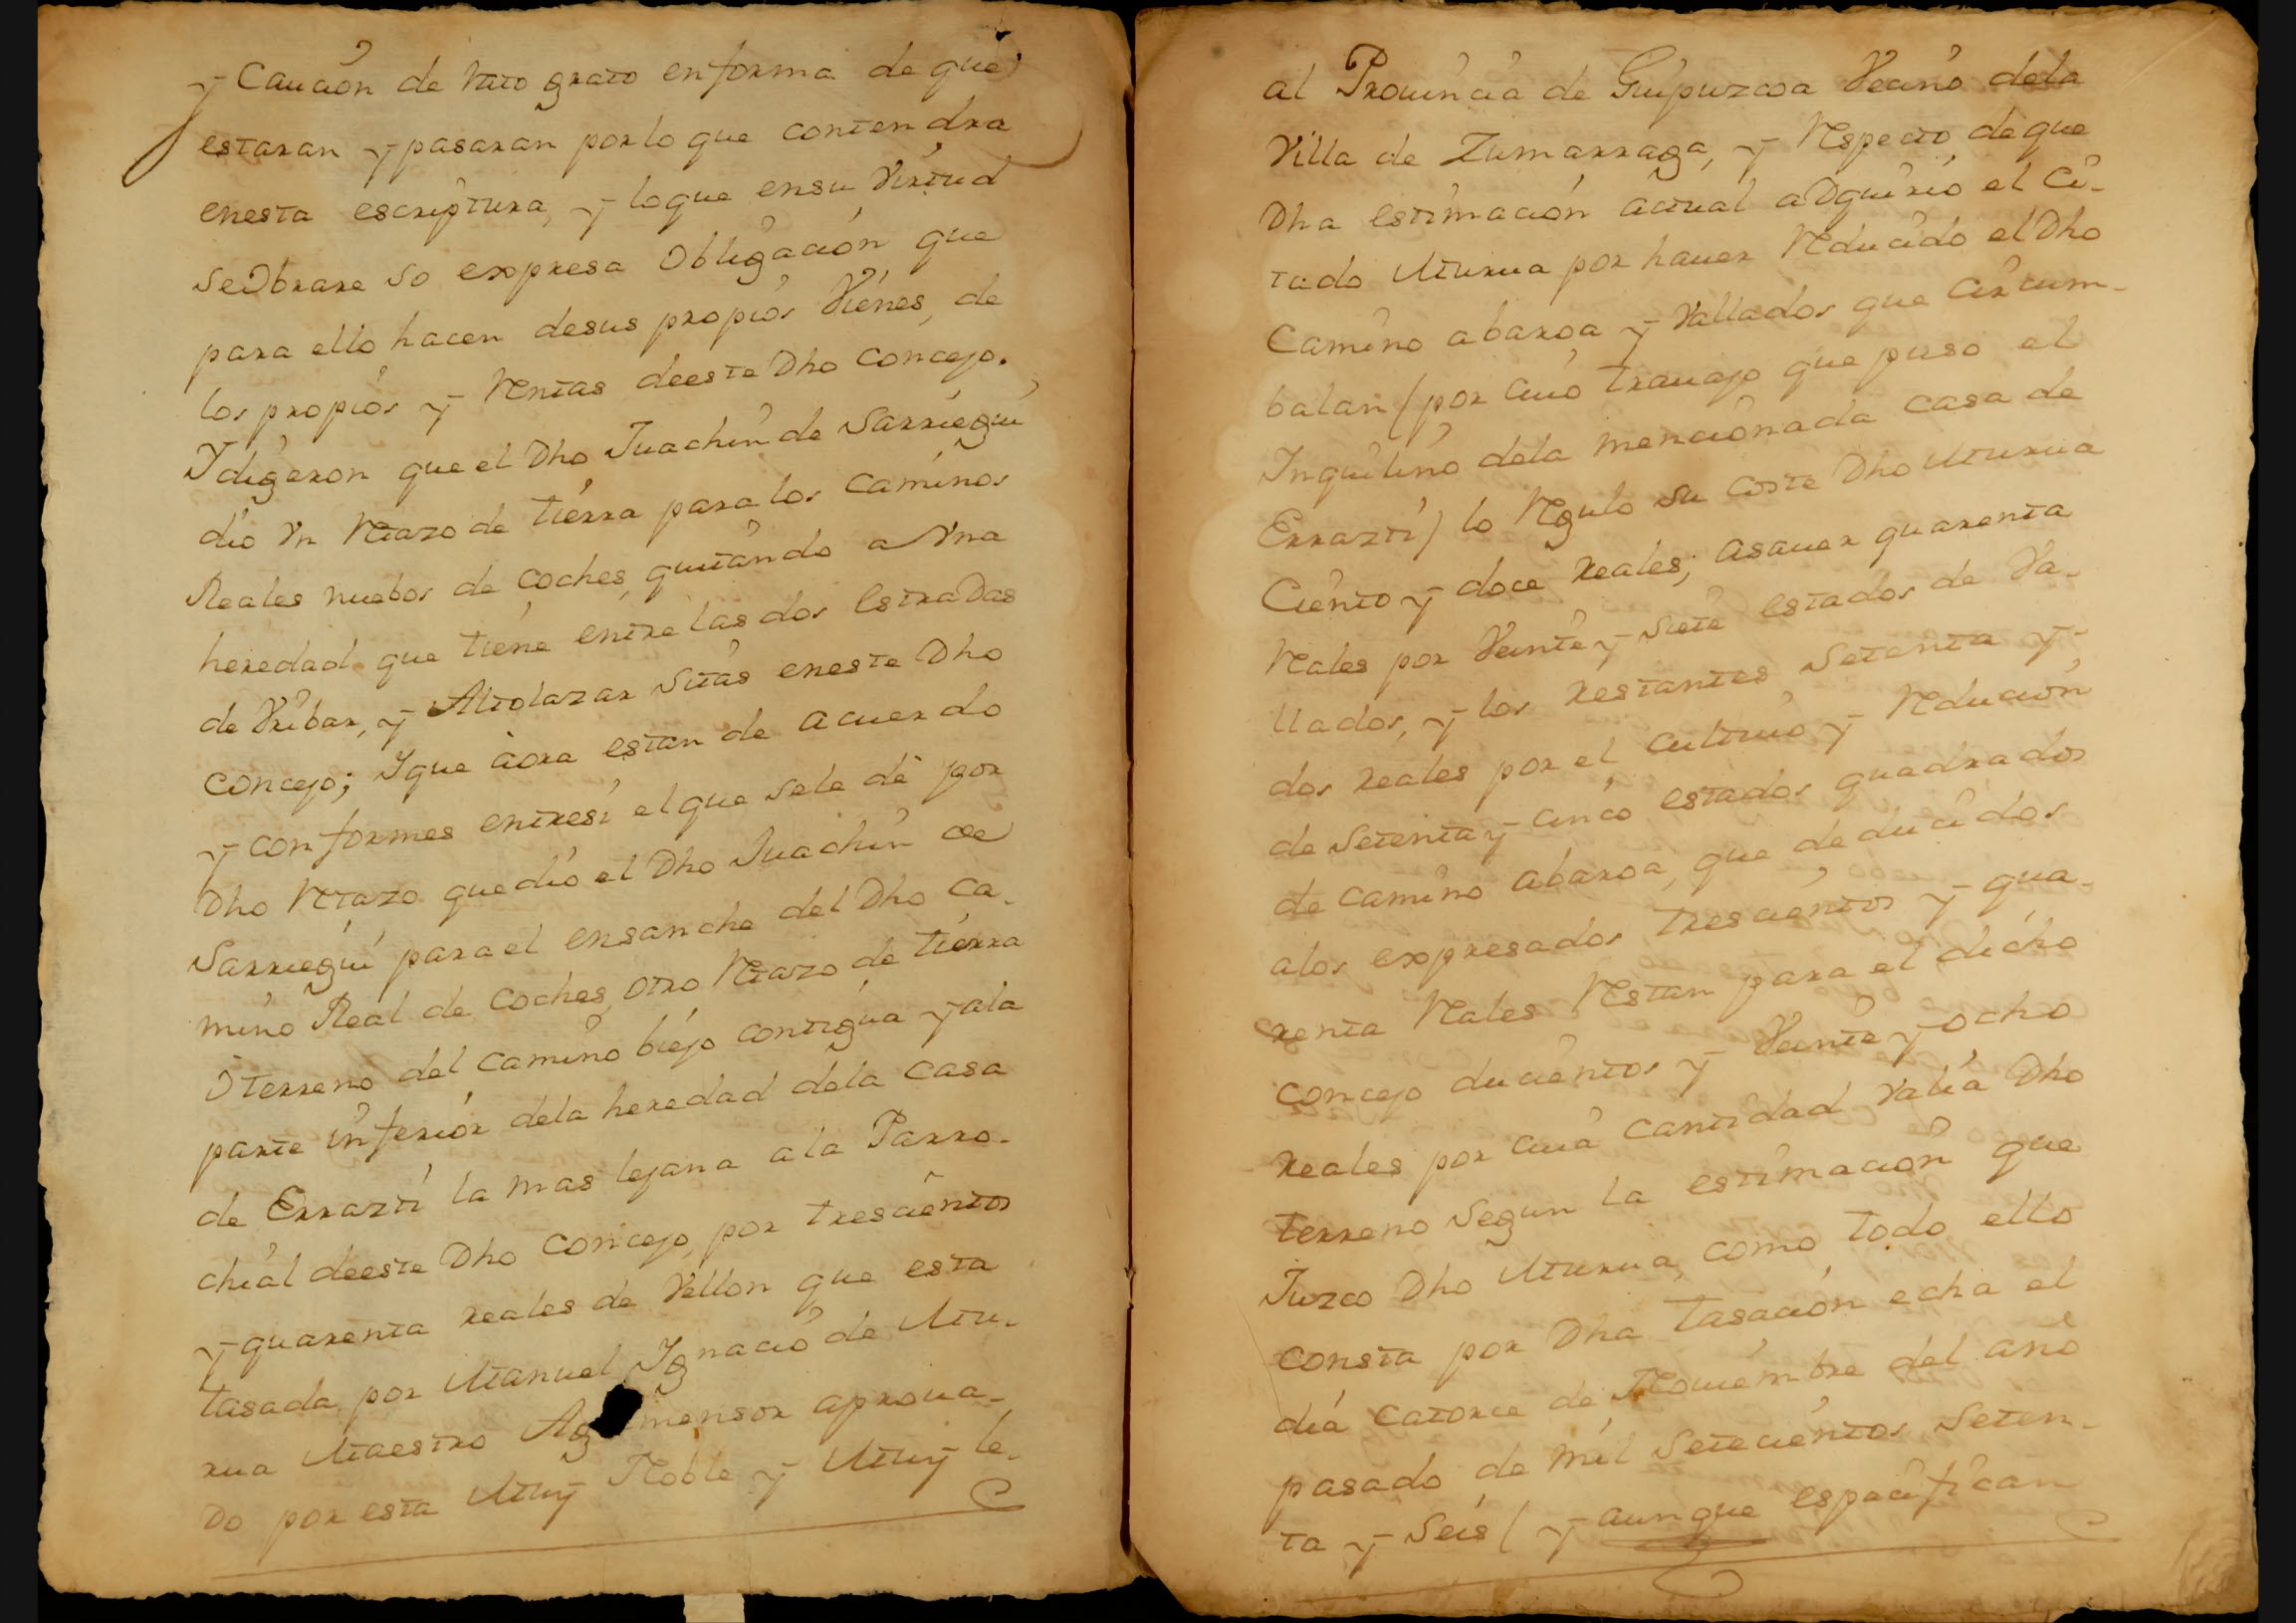 y Caución de rato grato en forma de que
estaran y pasaran por lo que contendra
en esta escriptura, y lo que en su virtud
se Obrare so expresa Obligación que
para ello hacen de sus propios Vienes, de
los propios y Rentas de este Dho Concejo.
Y digeron que el Dho Juachin de Sarriegui
dio Vn Retazo de tierra para los caminos
Reales nuebos de coches, quitando a Vna
heredad que tiene entre las dos Estradas
de Vribar, y Altolazar Sitas en este Dho
Concejo; Y que àora estan de acuerdo
y conformes entresi el que se le dè por
Dho Retazo que dio el Dho Juachin de
Sarriegui para el ensanche del Dho Ca-
mino Real de Coches, otro Retazo de tierra
ò terreno del camino biejo contigua y a la
parte inferior de la heredad de la casa
de Errazti la mas lejana a la Parro-
chial de este Dho Concejo, por trescientos
y quarenta reales de Vellon que esta
tasada por Manuel Ignacio de Mu-
rua Maestro Ag mensor aprova-
do por esta Muy Noble y Muy le-
al Provincia de Guipuzcoa Vecino de la
Villa de Zumarraga, y Respecto de que
Dha estimación actual aDquirio el Ci-
tado Murua por haver Reducido el Dho
Camino abaroa y Vallados que Circum-
balan (por cuio travajo que puso el
Inquilino de la mencionada casa de
Errazti) lo Regulo su coste Dho Murua
Ciento y doce Reales; asaver quarenta
Reales por Veinte y siete estados de Va-
llados, y los restantes Setenta y
dos reales por el cultivo y Redución
de Setenta y cinco estados quadrados
de camino abaroa, que deducidos
a los expresados trescientos y qua-
renta Reales Restan para el dicho
Concejo ducientos y Veinte y ocho
reales por cuia cantidad Valia Dho
terreno Segun la estimación que
Juzco Dho Murua, como todo ello
consta por Dha tasación echa el
dia catorce de Noviembre del año
pasado de mil Setecientos Seten-
ta y Seis (y aunque especifican